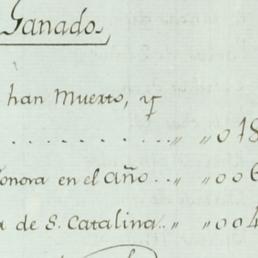 Ganado,
han Muerto, y
. . . . . . . . . . „ „018
onora en el año.. „ „006
a de S. Catalina.. „ „004